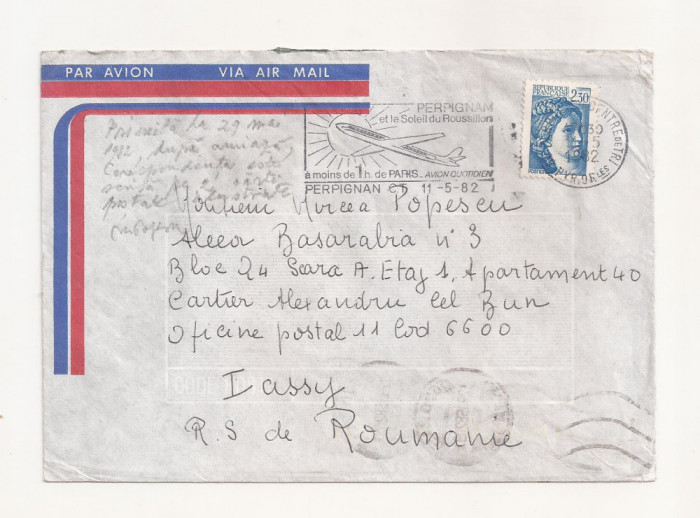 PAR AVION VIA AIR MAIL
PERPIGNAN
et le Soleil du Roussillon
à moins de 1 h. de PARIS. AVION QUOTIDIEN
PERPIGNAN CT 11-5-82
REPUBLIQUE FRANÇAISE
2,30
POSTES
CENTRE DE TRI
PYR. OR.LES
29 mai
1982, după amiază
Corespondența este
postal
Monsieur Mircea Popescu
Aleea Basarabia n° 3
Bloc 24 Scara A. Etaj 1, Apartament 40
Cartier Alexandru Cel Bun
Oficine postal 11 Cod 6600
Iassy
R.S de Roumanie